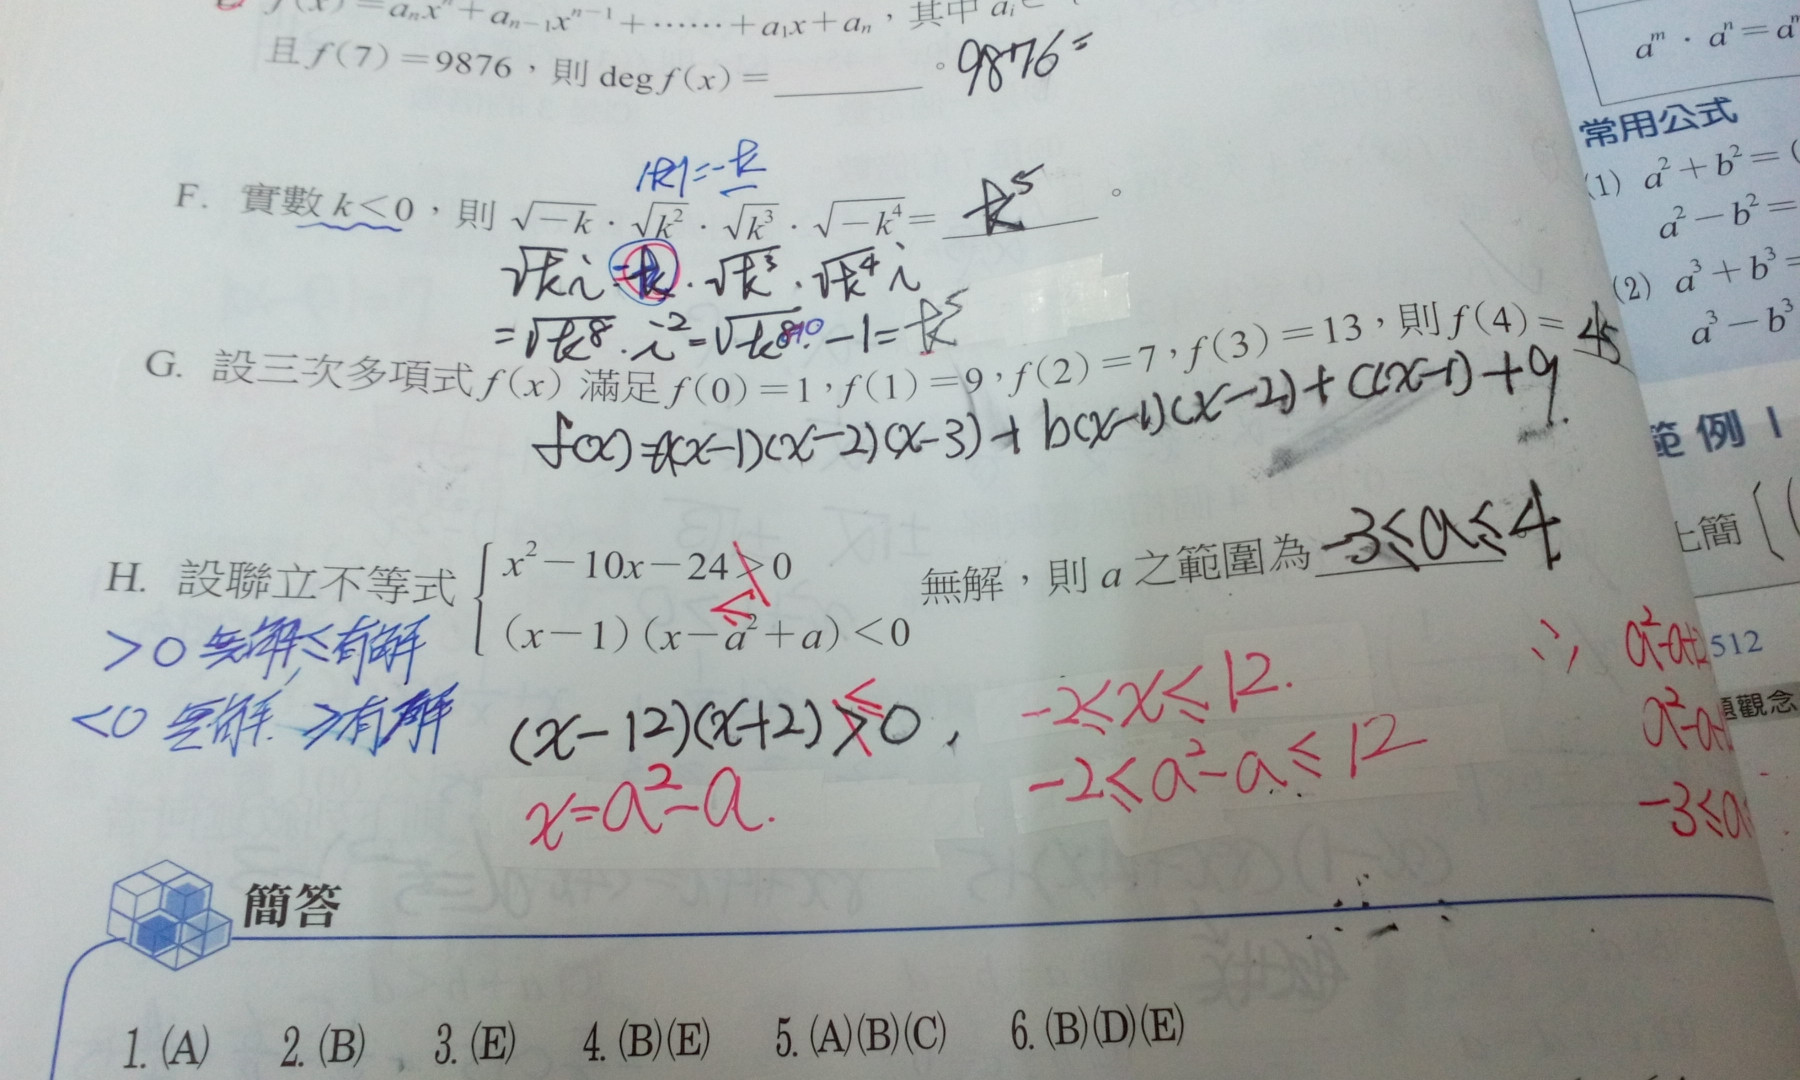 f(x)=aₙxⁿ+aₙ₋₁xⁿ⁻¹+⋯⋯+a₁x+aₙ，其中 aᵢ
且 f(7)=9876，則 deg f(x)=______。 9876=
|k|=-k
F. 實數 k<0，則 √-k · √k² · √k³ · √-k⁴ = k⁵ 。
√k i · -k · √k³ · √k⁴ i
=√k⁸ · i² = √k⁸ · -1 = k⁵
G. 設三次多項式 f(x) 滿足 f(0)=1，f(1)=9，f(2)=7，f(3)=13，則 f(4)= 45
f(x)=a(x-1)(x-2)(x-3)+b(x-1)(x-2)+c(x-1)+9.
H. 設聯立不等式 { x²-10x-24>0 ≤
(x-1)(x-a²+a)<0 無解，則 a 之範圍為 -3≤a≤4
>0 無解, ≤有解
<0 無解. ≥有解
(x-12)(x+2)>0, ≤
x=a²-a.
-2≤x≤12.
-2≤a²-a≤12
∴ a²-a+2
a²-a-
-3≤a≤
簡答
1. (A) 2. (B) 3. (E) 4. (B)(E) 5. (A)(B)(C) 6. (B)(D)(E)
aᵐ · aⁿ = aᵐ
常用公式
(1) a²+b²=(
a²-b²=
(2) a³+b³=
a³-b³
範例 1
上簡 {(
512
題觀念